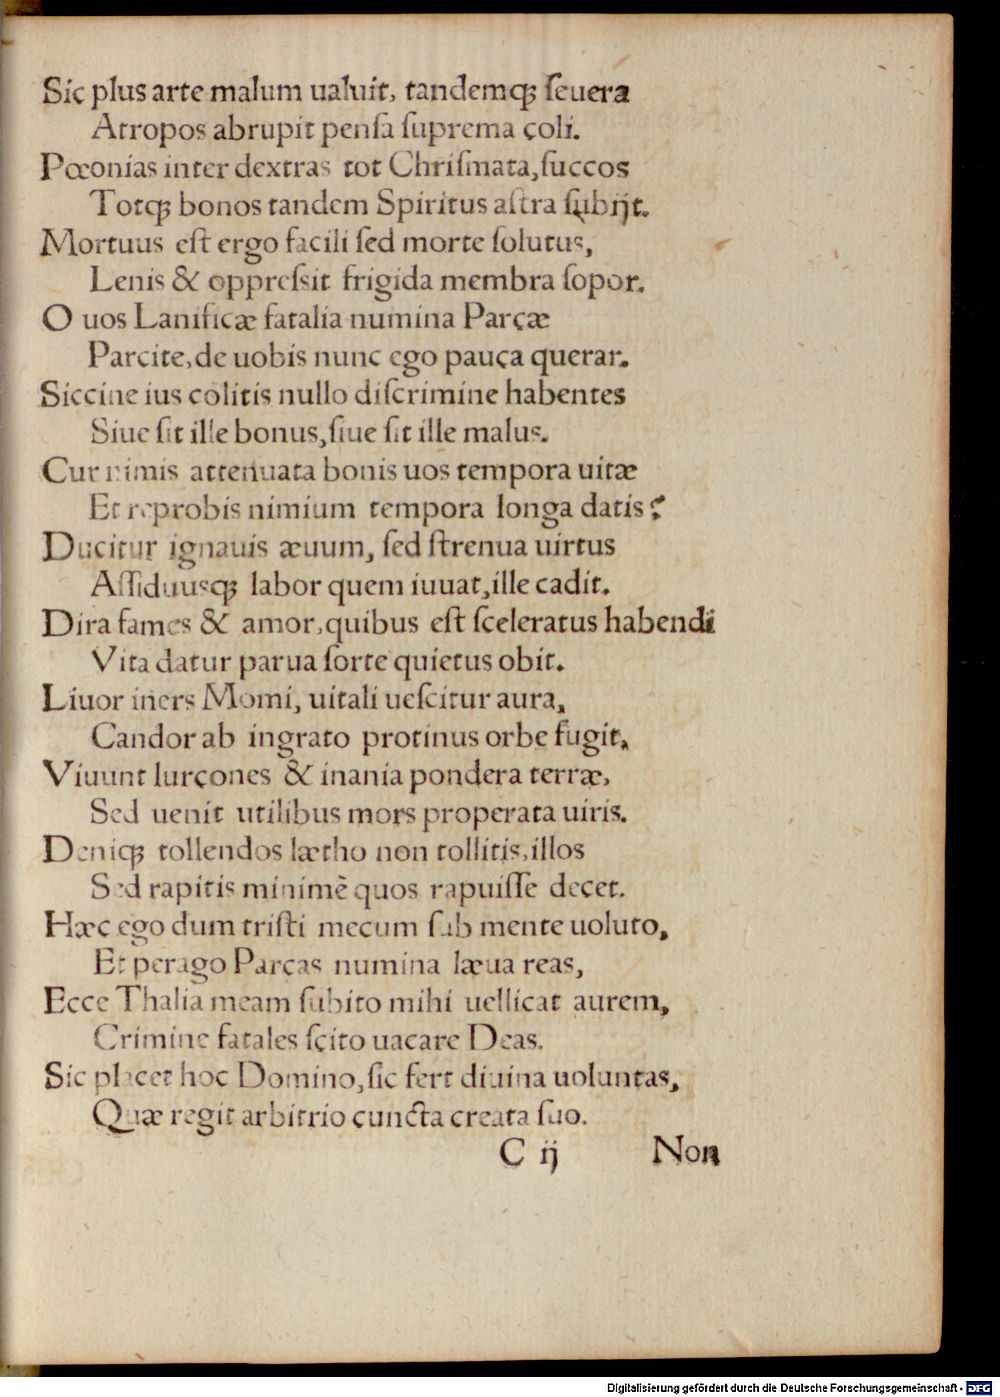 Sic plus arte malum ualuit, tandemqꝫ ſeuera
Atropos abrupit penſa ſuprema coli.
Pœonias inter dextras tot Chriſmata, ſuccos
Totqꝫ bonos tandem Spiritus aſtra ſubijt.
Mortuus eſt ergo facili ſed morte ſolutus,
Lenis & oppreſsit frigida membra ſopor.
O uos Lanificæ fatalia numina Parcæ
Parcite, de uobis nunc ego pauca querar.
Siccine ius colitis nullo diſcrimine habentes
Siue ſit ille bonus, ſiue ſit ille malus.
Cur nimis attenuata bonis uos tempora uitæ
Et reprobis nimium tempora longa datis?
Ducitur ignauis æuum, ſed ſtrenua uirtus
Aſſiduusqꝫ labor quem iuuat, ille cadit.
Dira fames & amor, quibus eſt ſceleratus habendi
Vita datur parua ſorte quietus obit.
Liuor iners Momi, uitali ueſcitur aura,
Candor ab ingrato protinus orbe fugit,
Viuunt lurcones & inania pondera terræ,
Sed uenit utilibus mors properata uiris.
Deniqꝫ tollendos lætho non tollitis, illos
Sed rapitis minimè quos rapuiſſe decet.
Hæc ego dum triſti mecum ſub mente uoluto,
Et perago Parcas numina læua reas,
Ecce Thalia meam ſubito mihi uellicat aurem,
Crimine fatales ſcito uacare Deas.
Sic placet hoc Domino, ſic fert diuina uoluntas,
Quæ regit arbitrio cuncta creata ſuo.
C ij Non
Digitalisierung gefördert durch die Deutsche Forschungsgemeinschaft - DFG